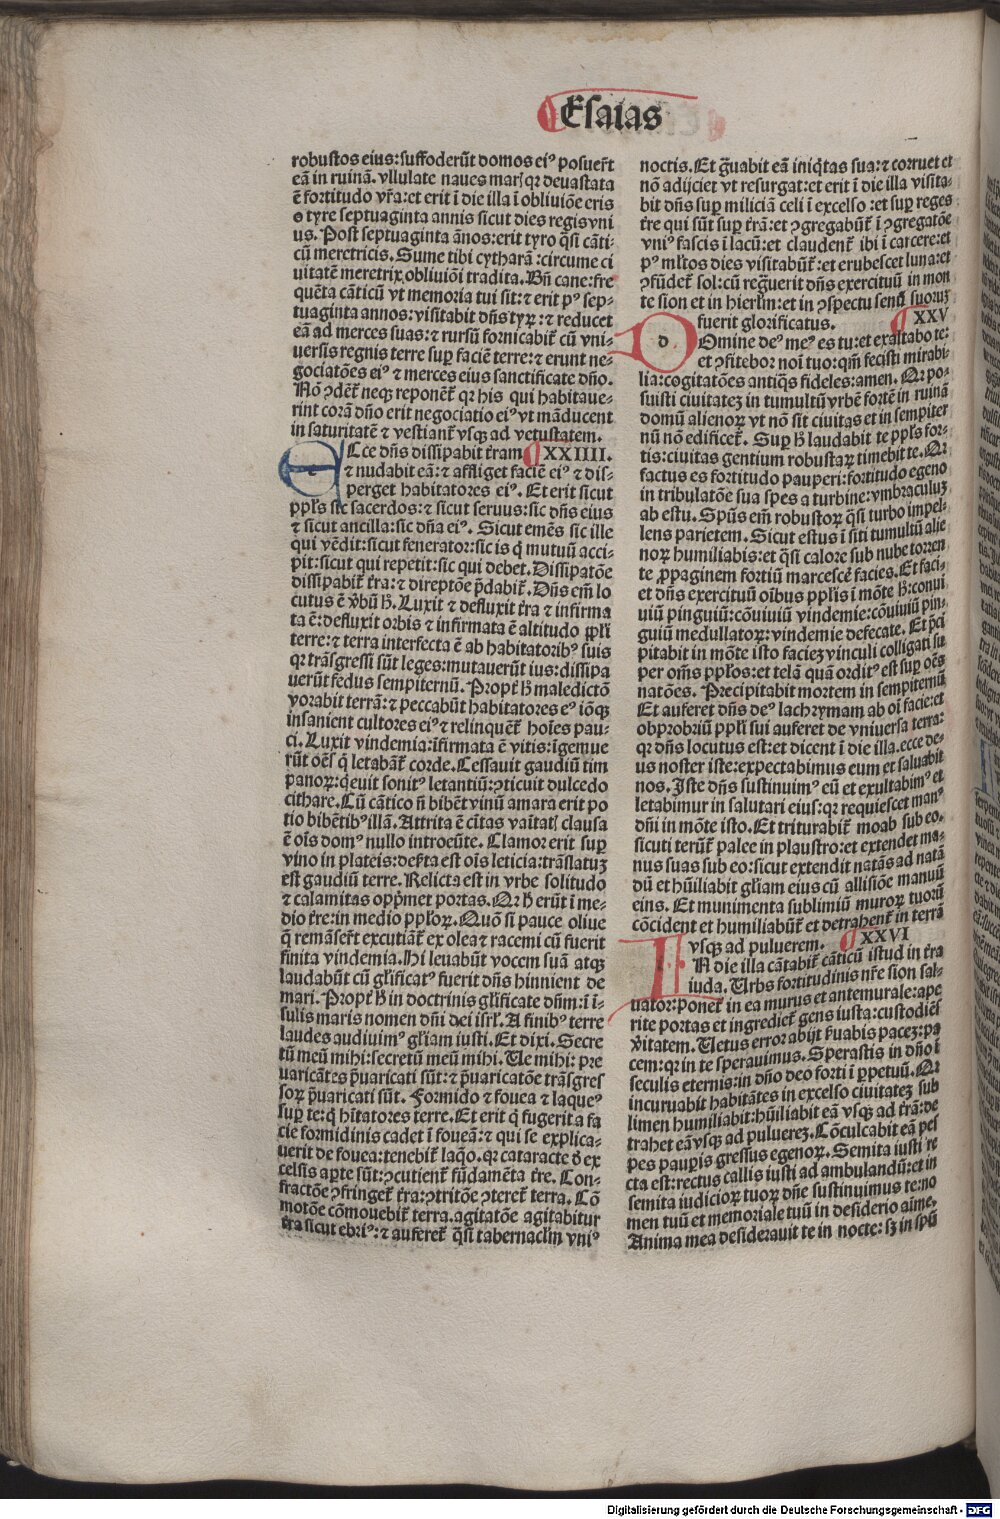 Esaias
robustos eius:suffoderūt domos eiꝰ posuer̄t
eā in ruinā. vllulate naues marꝭ qꝛ deuastata
ē fortitudo vr̄a:et erit ī die illa ī obliuiōe eris
o tyre septuaginta annis sicut dies regis vni
us. Post septuaginta ānos:erit tyro q̄si cāti⸗
cū meretricis. Sume tibi cytharā :circume ci
uitatē meretrix obliuiōi tradita. Bn̄ cane:fre
quēta cāticū vt memoria tui sit:⁊ erit pꝰ sep⸗
tuaginta annos:visitabit dn̄s tyꝝ:⁊ reducet
eā ad merces suas:⁊ rursū fornicabit̄ cū vni⸗
uersis regnis terre suꝑ faciē terre:⁊ erunt ne⸗
gociatōes eiꝰ ⁊ merces eius sanctificate dn̄o.
Nō ꝯdēt̄ neqꝫ reponēt̄ qꝛ his qui habitaue⸗
rint corā dn̄o erit negociatio eiꝰ vt māducent
in saturitatē ⁊ vestiant̄ vsqꝫ ad vetustatem.
e Cce dn̄s dissipabit t̄ram XXIIII.
⁊ nudabit eā:⁊ affliget faciē eiꝰ ⁊ dis⸗
perget habitatores eiꝰ. Et erit sicut
ppl̄s sic sacerdos:⁊ sicut seruus:sic dn̄s eius
⁊ sicut ancilla:sic dn̄a eiꝰ. Sicut emēs sic ille
qui vēdit:sicut fenerator:sic is q̄ mutuū acci⸗
pit:sicut qui repetit:sic qui debet. Dissipatōe
dissipabit̄ t̄ra:⁊ direptōe p̄dabit̄. Dn̄s em̄ lo
cutus ē v̄bū h̄. Luxit ⁊ defluxit t̄ra ⁊ infirma
ta ē:defluxit orbis ⁊ infirmata ē altitudo ppl̄i
terre:⁊ terra interfecta ē ab habitatoribꝰ suis
qꝛ trāsgressi sūt leges:mutauerūt ius:dissipa
uerūt fedus sempiternū. Propt̄ h̄ maledictō
vorabit terrā:⁊ peccabūt habitatores eꝰ iōqꝫ
insanient cultores eiꝰ ⁊ relinquēt̄ hoīes pau⸗
ci. Luxit vindemia:īfirmata ē vitis:īgemue
rūt oēs q̄ letabāt̄ corde. Cessauit gaudiū tim
panoꝝ:q̄euit sonitꝰ letantiū:ꝯticuit dulcedo
cithare. Cū cātico n̄ bibēt vinū amara erit po
tio bibētibꝰ illā. Attrita ē cītas vaītatꝭ clausa
ē oīs domꝰ nullo introeūte. Clamor erit suꝑ
vino in plateis:defta est oīs leticia:trāslatuꝫ
est gaudiū terre. Relicta est in vrbe solitudo
⁊ calamitas opp̄met portas. Qꝛ h̄ erūt ī me⸗
dio t̄re:in medio ppl̄oꝝ. Quō si pauce oliue
q̄ remāser̄t excutiāt̄ ex olea ⁊ racemi cū fuerit
finita vindemia. Hi leuabūt vocem suā atqꝫ
laudabūt cū gl̄ificatꝰ fuerit dn̄s hinnient de
mari. Propt̄ h̄ in doctrinis gl̄ificate dn̄m:ī ī⸗
sulis maris nomen dn̄i dei isrl̄. A finibꝰ terre
laudes audiuimꝰ gl̄iam iusti. Et dixi. Secre
tū meū mihi:secretū meū mihi. Ue mihi: pre
uaricātes p̄uaricati sūt:⁊ p̄uaricatōe trāsgres
soꝝ p̄uaricati sūt. Formido ⁊ fouea ⁊ laqueꝰ
suꝑ te:q̄ hītatores terre. Et erit q̄ fugerit a fa
cie formidinis cadet ī foueā:⁊ qui se explica⸗
uerit de fouea:tenebit̄ laq̄o. qꝛ cataracte d̄ ex
celsis aꝑte sūt:ꝯcutient̄ fūdamēta t̄re. Con⸗
fractōe ꝯfringet̄ t̄ra:ꝯtritōe ꝯteret̄ terra. Cō
motōe cōmouebit̄ terra. agitatōe agitabitur
t̄ra sicut ebriꝰ:⁊ auferet̄ q̄si tabernacl̄m vniꝰ
noctis. Et ḡuabit eā iniq̄tas sua:⁊ corruet et
nō adijciet vt resurgat:et erit ī die illa visita⸗
bit dn̄s suꝑ miliciā celi ī excelso :et suꝑ reges
t̄re qui sūt suꝑ t̄rā:et ꝯgregabūt̄ ī ꝯgregatōe
vniꝰ fascis ī lacū:et claudent̄ ibi ī carcere:et
pꝰ ml̄tos dies visitabūt̄:et erubescet luna:et
ꝯfūdet̄ sol:cū reḡuerit dn̄s exercituū in mon
te sion et in hierl̄m:et in ꝯspectu senū suoruꝫ
fuerit glorificatus. XXV
d Omine deꝰ meꝰ es tu:et exaltabo te:
et ꝯfitebor noī tuo:qm̄ fecisti mirabi⸗
lia:cogitatōes antiq̄s fideles:amen. Qꝛ po⸗
suisti ciuitateꝫ in tumultū vrbē fortē in ruinā
domū alienoꝝ vt nō sit ciuitas et in sempiter
nū nō edificet̄. Suꝑ h̄ laudabit te ppl̄s for⸗
tis:ciuitas gentium robustaꝝ timebit te. Qꝛ
factus es fortitudo pauperi:fortitudo egeno
in tribulatōe sua spes a turbine:vmbraculuꝫ
ab estu. Spūs em̄ robustoꝝ q̄si turbo impel⸗
lens parietem. Sicut estus ī siti tumultū alie
noꝝ humiliabis:et q̄si calore sub nube torren
te ꝓpaginem fortiū marcescē facies. Et faci⸗
et dn̄s exercituū oībus ppl̄is ī mōte h̄:conui
uiū pinguiū:cōuiuiū vindemie:cōuiuiū pin⸗
guiū medullatoꝝ:vindemie defecate. Et p̄ci
pitabit in mōte isto facieꝫ vinculi colligati su
per om̄s ppl̄os:et telā quā orditꝰ est suꝑ oēs
natōes. Precipitabit mortem in sempiternū
Et auferet dn̄s deꝰ lachrymam ab oī facie:et
obprobriū ppl̄i sui auferet de vniuersa terra:
qꝛ dn̄s locutus est:et dicent ī die illa.ecce de⸗
us noster iste:expectabimus eum et saluabit
nos. Iste dn̄s sustinuimꝰ eū et exultabimꝰ et
letabimur in salutari eius:qꝛ requiescet manꝰ
dn̄i in mōte isto. Et triturabit̄ moab sub eo.
sicuti terūt̄ palee in plaustro:et extendet ma⸗
nus suas sub eo:sicut extendit natās ad natā
dū et hūiliabit gl̄iam eius cū allisiōe manuū
eins. Et munimenta sublimiū muroꝝ tuorū
cōcident et humiliabūt̄ et detrahent̄ in terrā
vsqꝫ ad puluerem. XXVI
I N die illa cātabit̄ cāticū istud in t̄ra
iuda. Urbs fortitudinis nr̄e sion sal⸗
uator:ponet̄ in ea murus et antemurale:ape
rite portas et ingrediet̄ gens iusta:custodiēs
v̄itatem. Uetus error abijt s̄uabis paceꝫ:pa
cem:qꝛ in te sperauimus. Sperastis in dn̄o ī
seculis eternis:in dn̄o deo forti ī ꝑpetuū. Qꝛ
incuruabit habitātes in excelso ciuitateꝫ sub
limen humiliabit:hūiliabit eā vsqꝫ ad t̄rā:de
trahet eā vsqꝫ ad puluereꝫ. Cōculcabit eā pes
pes pauꝑis gressus egenoꝝ. Semita iusti re
cta est:rectus callis iusti ad ambulandū:et in
semita iudicioꝝ tuoꝝ dn̄e sustinuimus te:no
men tuū et memoriale tuū in desiderio aīme.
Anima mea desiderauit te in nocte: sꝫ in spū
Digitalisierung gefördert durch die Deutsche Forschungsgemeinschaft - DFG